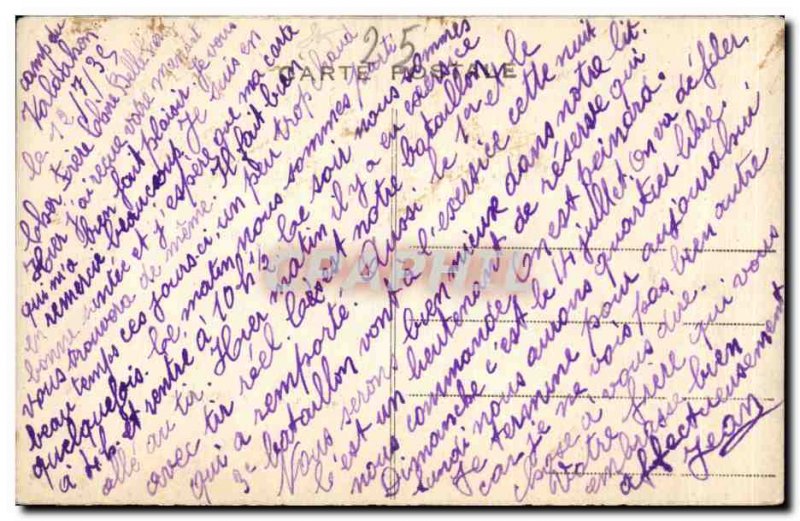 camp du
Valdahon
le 12/7/35
Cher Frère Chère Belle Sœur
Hier j'ai reçue votre mandat
qui m'a bien fait plaisir. Je vous
en remercie beaucoup. Je suis en
bonne santée et j'espère que ma carte
vous trouvera de même. Il fait bien
beau temps ces jours ci, un peu trop chaud
quelquefois. Le matin, nous sommes parti
à 4h. et rentré à 10h ½. Le soir nous sommes
allé au tir. Hier matin il y a eu exercice
avec tir réel. C'est notre bataillon
qui a remporté. Aussi le 1er et le
3e bataillon vont à l'exercice cette nuit
Nous serons bien mieux dans notre lit.
C'est un lieutenant de réserve qui
nous commande. On est peindra.
Dimanche c'est le 14 juillet. On va défiler.
Lundi nous aurons quartier libre.
Je termine pour aujourdhui
car je ne vois pas bien autre
chose à vous dire.
Votre frère qui vous
embrasse bien
affectueusement
Jean
CARTE POSTALE
25
CPAPHIL